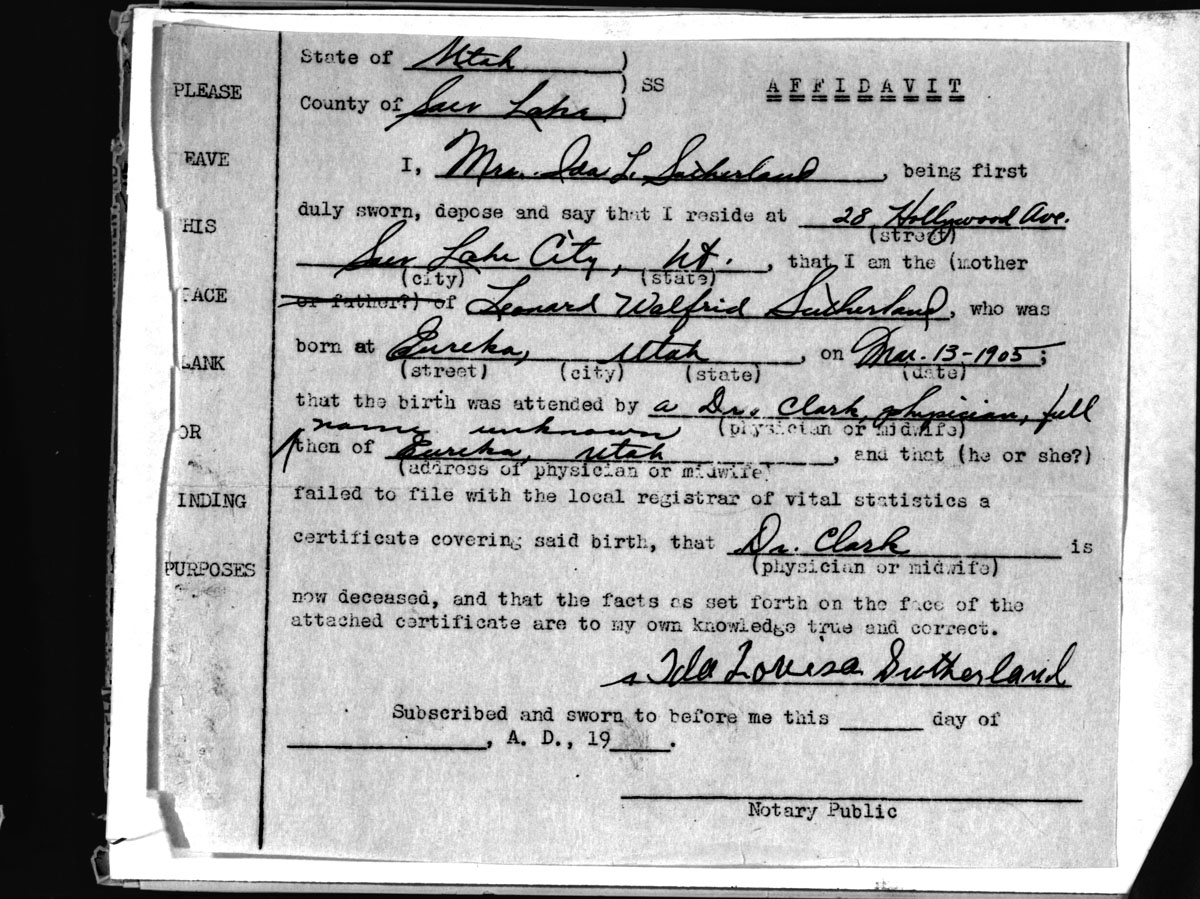 State of Utah )
) SS AFFIDAVIT
County of Salt Lake )
PLEASE
EAVE
HIS
FACE
LANK
OR
INDING
PURPOSES
I, Mrs. Ida L. Sutherland, being first
duly sworn, depose and say that I reside at 28 Hollywood Ave.
(street)
Salt Lake City, Ut., that I am the (mother
(city) (state)
or father?) of Leonard Walfrid Sutherland, who was
born at Eureka, Utah, on Mar. 13-1905;
(street) (city) (state) (date)
that the birth was attended by a Dr. Clark, physician, full
name unknown (physician or midwife)
then of Eureka, Utah, and that (he or she?)
(address of physician or midwife)
failed to file with the local registrar of vital statistics a
certificate covering said birth, that Dr. Clark is
(physician or midwife)
now deceased, and that the facts as set forth on the face of the
attached certificate are to my own knowledge true and correct.
s Ida Lovisa Sutherland
Subscribed and sworn to before me this ______ day of
______________, A. D., 19____.
Notary Public